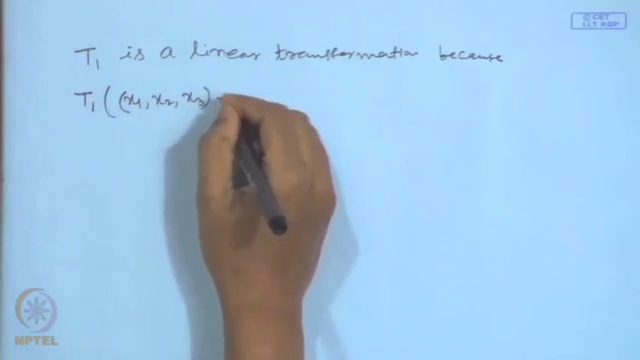 © CET
I.I.T. KGP
T₁ is a linear transformation because
T₁ ( (x₁, x₂, x₃)
NPTEL